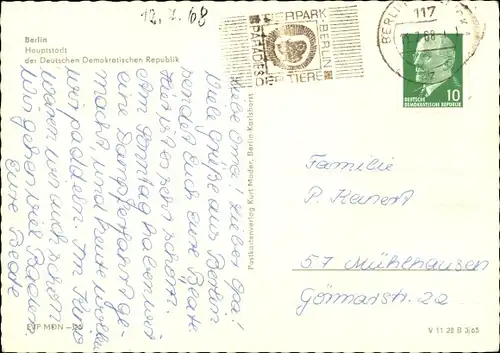 12.7.68
Berlin
Hauptstadt
der Deutschen Demokratischen Republik
TIERPARK BERLIN
PARADIES DER TIERE
BERLIN
117
DEUTSCHE
DEMOKRATISCHE REPUBLIK
10
Liebe Oma! Lieber Opa!
Viele Grüße aus Berlin
sendet Euch Eure Beate
Hier ist es sehr schön.
Am Sonntag haben wir
eine Dampferfahrt ge-
macht, und heute wollen
wir paddeln. Im Kino
waren wir auch schon
Wir gehen viel Baden.
Eure Beate
Postkartenverlag Kurt Mader, Berlin-Karlshorst
Familie
P.
57 Mühlhausen
Görmarstr. 22
EVP MDN
V 11 28 B 3/65